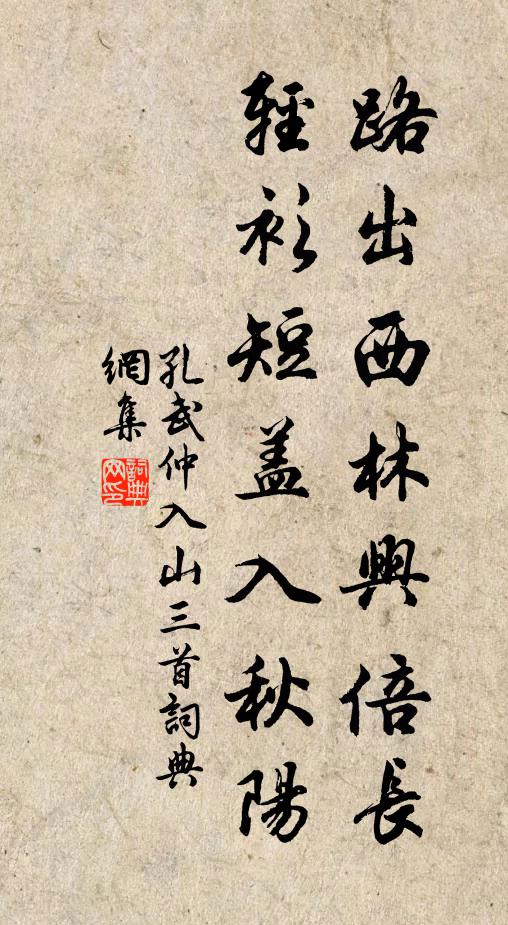 路出西林興倍長
輕衫短蓋入秋陽
孔武仲入山三首詞典
網集
詞典
网印